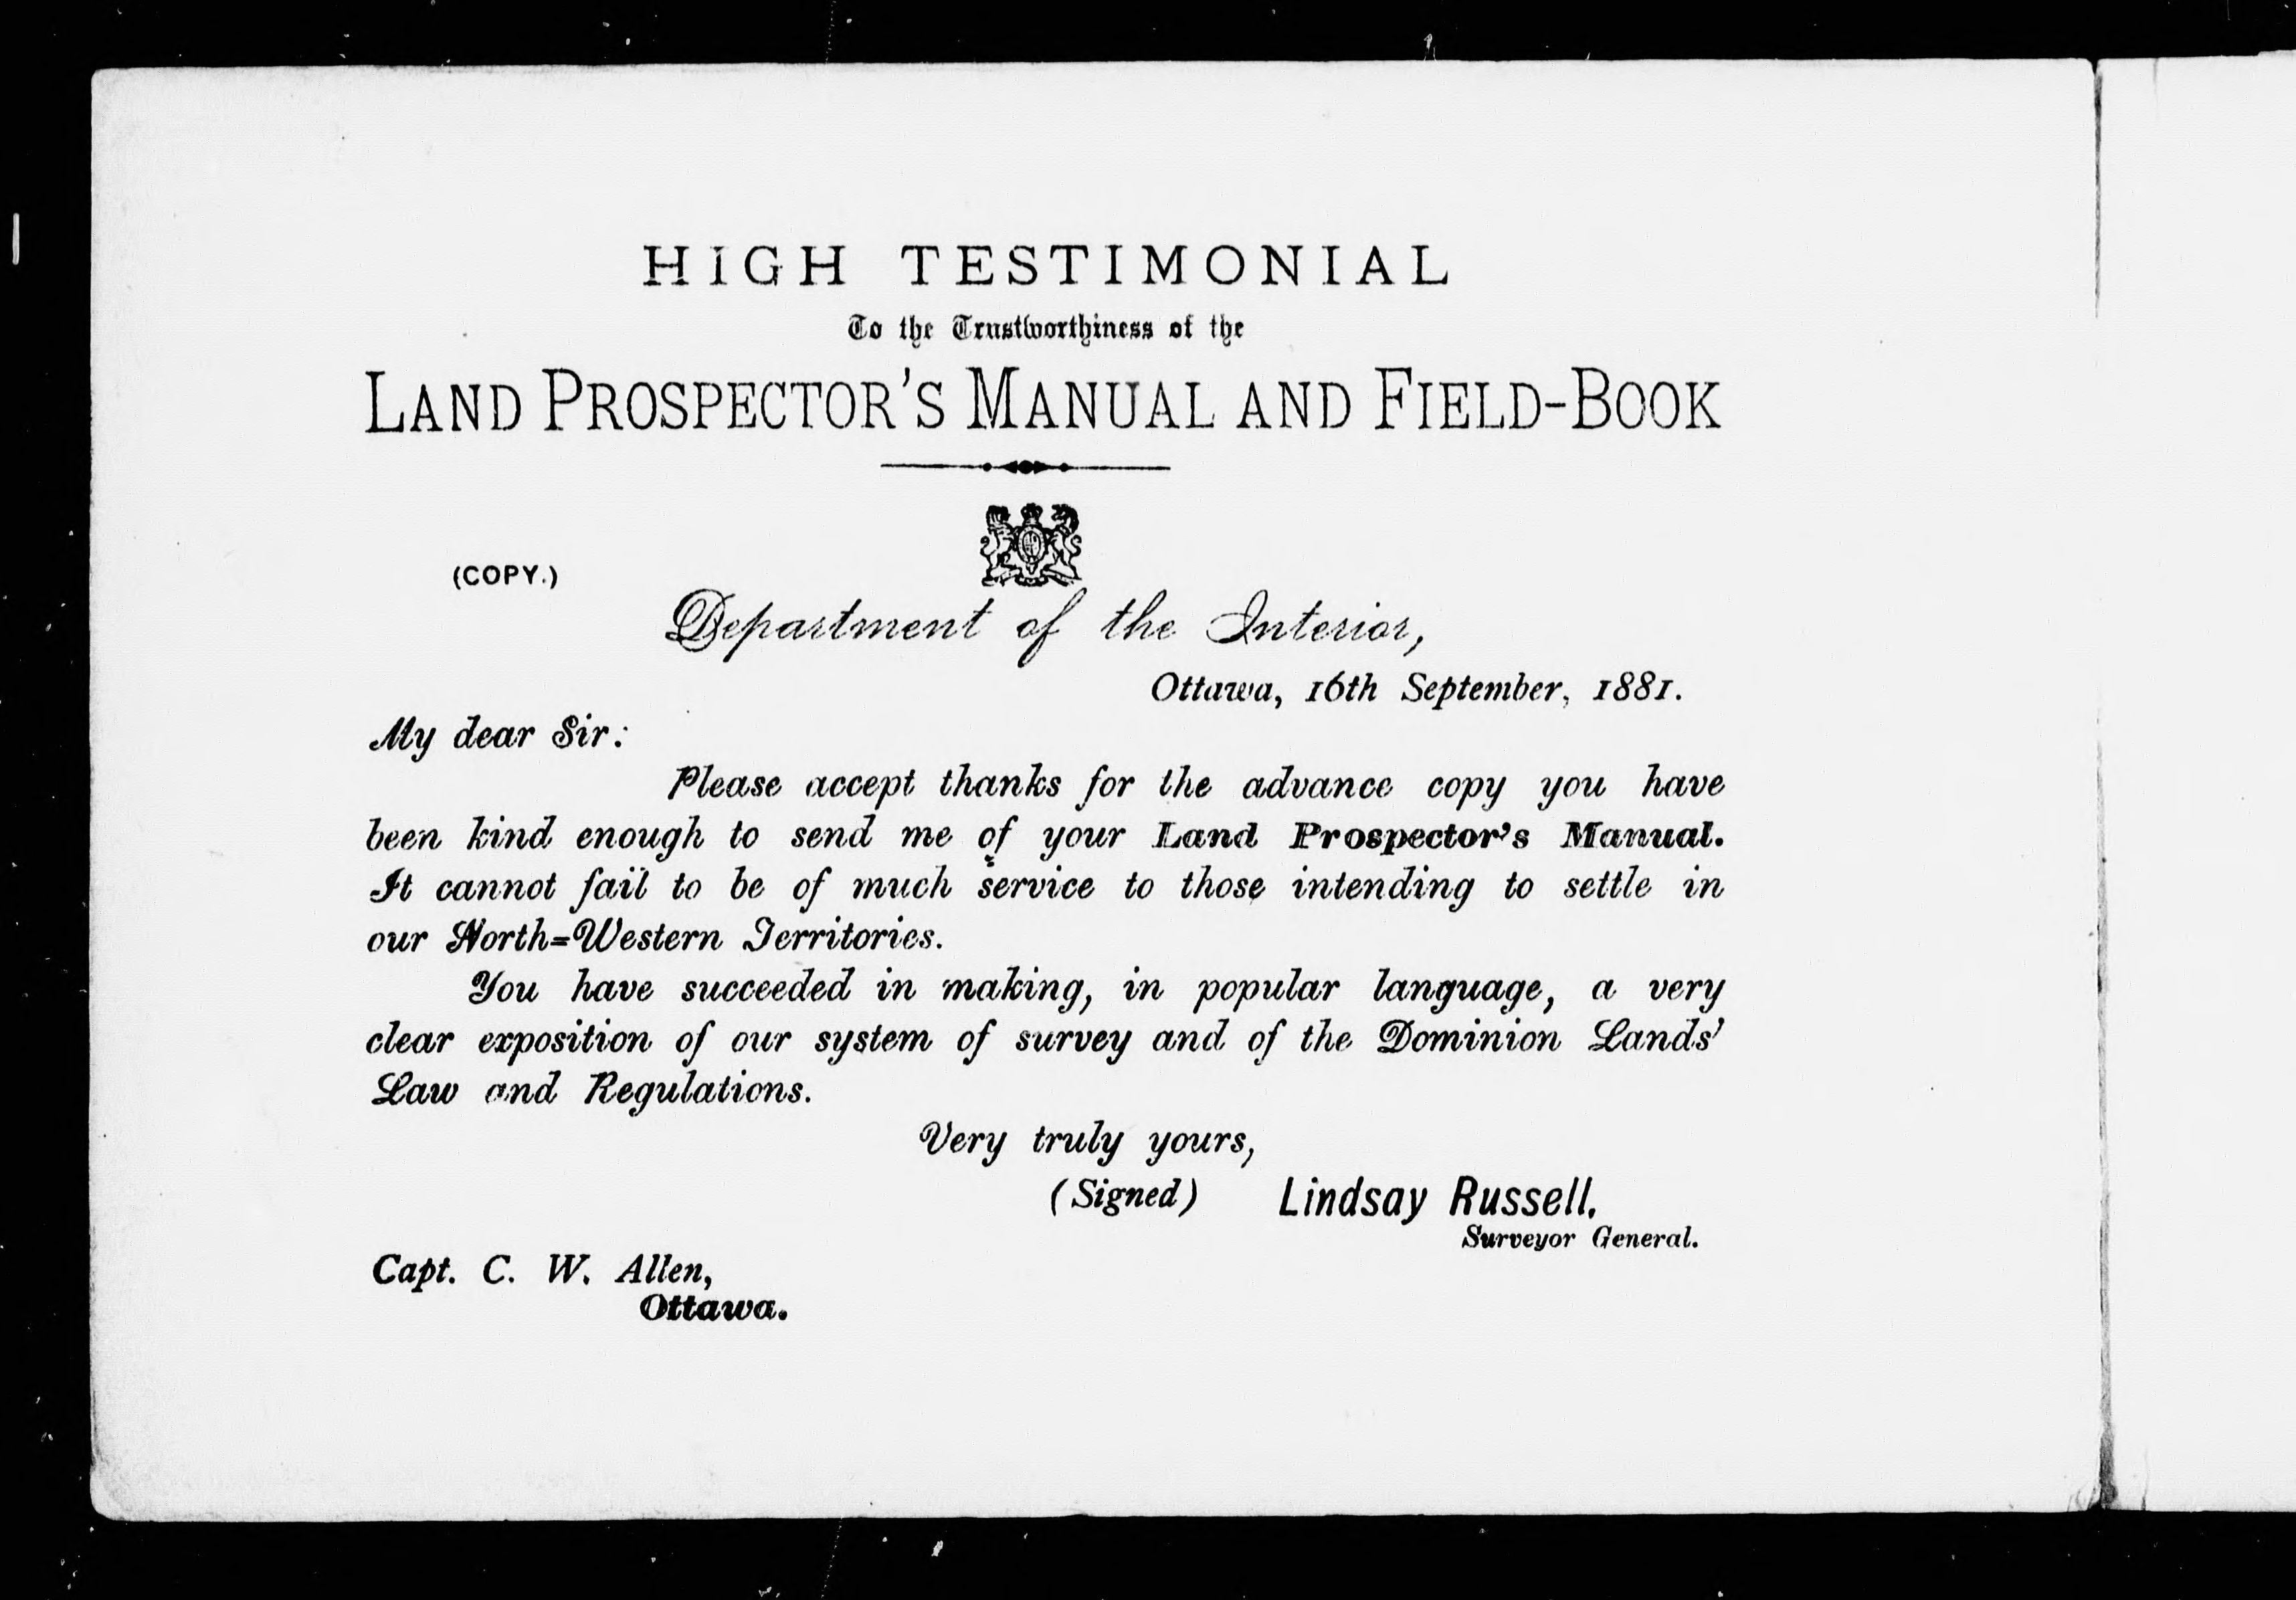 HIGH TESTIMONIAL
To the Trustworthiness of the
LAND PROSPECTOR'S MANUAL AND FIELD-BOOK
(COPY.)
Department of the Interior,
Ottawa, 16th September, 1881.
My dear Sir:
Please accept thanks for the advance copy you have
been kind enough to send me of your Land Prospector's Manual.
It cannot fail to be of much service to those intending to settle in
our North=Western Territories.
You have succeeded in making, in popular language, a very
clear exposition of our system of survey and of the Dominion Lands'
Law and Regulations.
Very truly yours,
(Signed) Lindsay Russell,
Surveyor General.
Capt. C. W. Allen,
Ottawa.